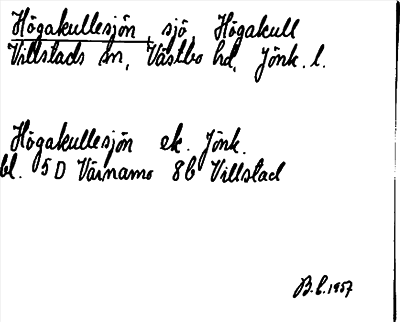 Högakullesjön, sjö, Högakull
Villstads sn, Västbo hd, Jönk. l.
Högakullesjön ek. Jönk.
bl. 5D Värnamo 8b Villstad
B.C. 1957